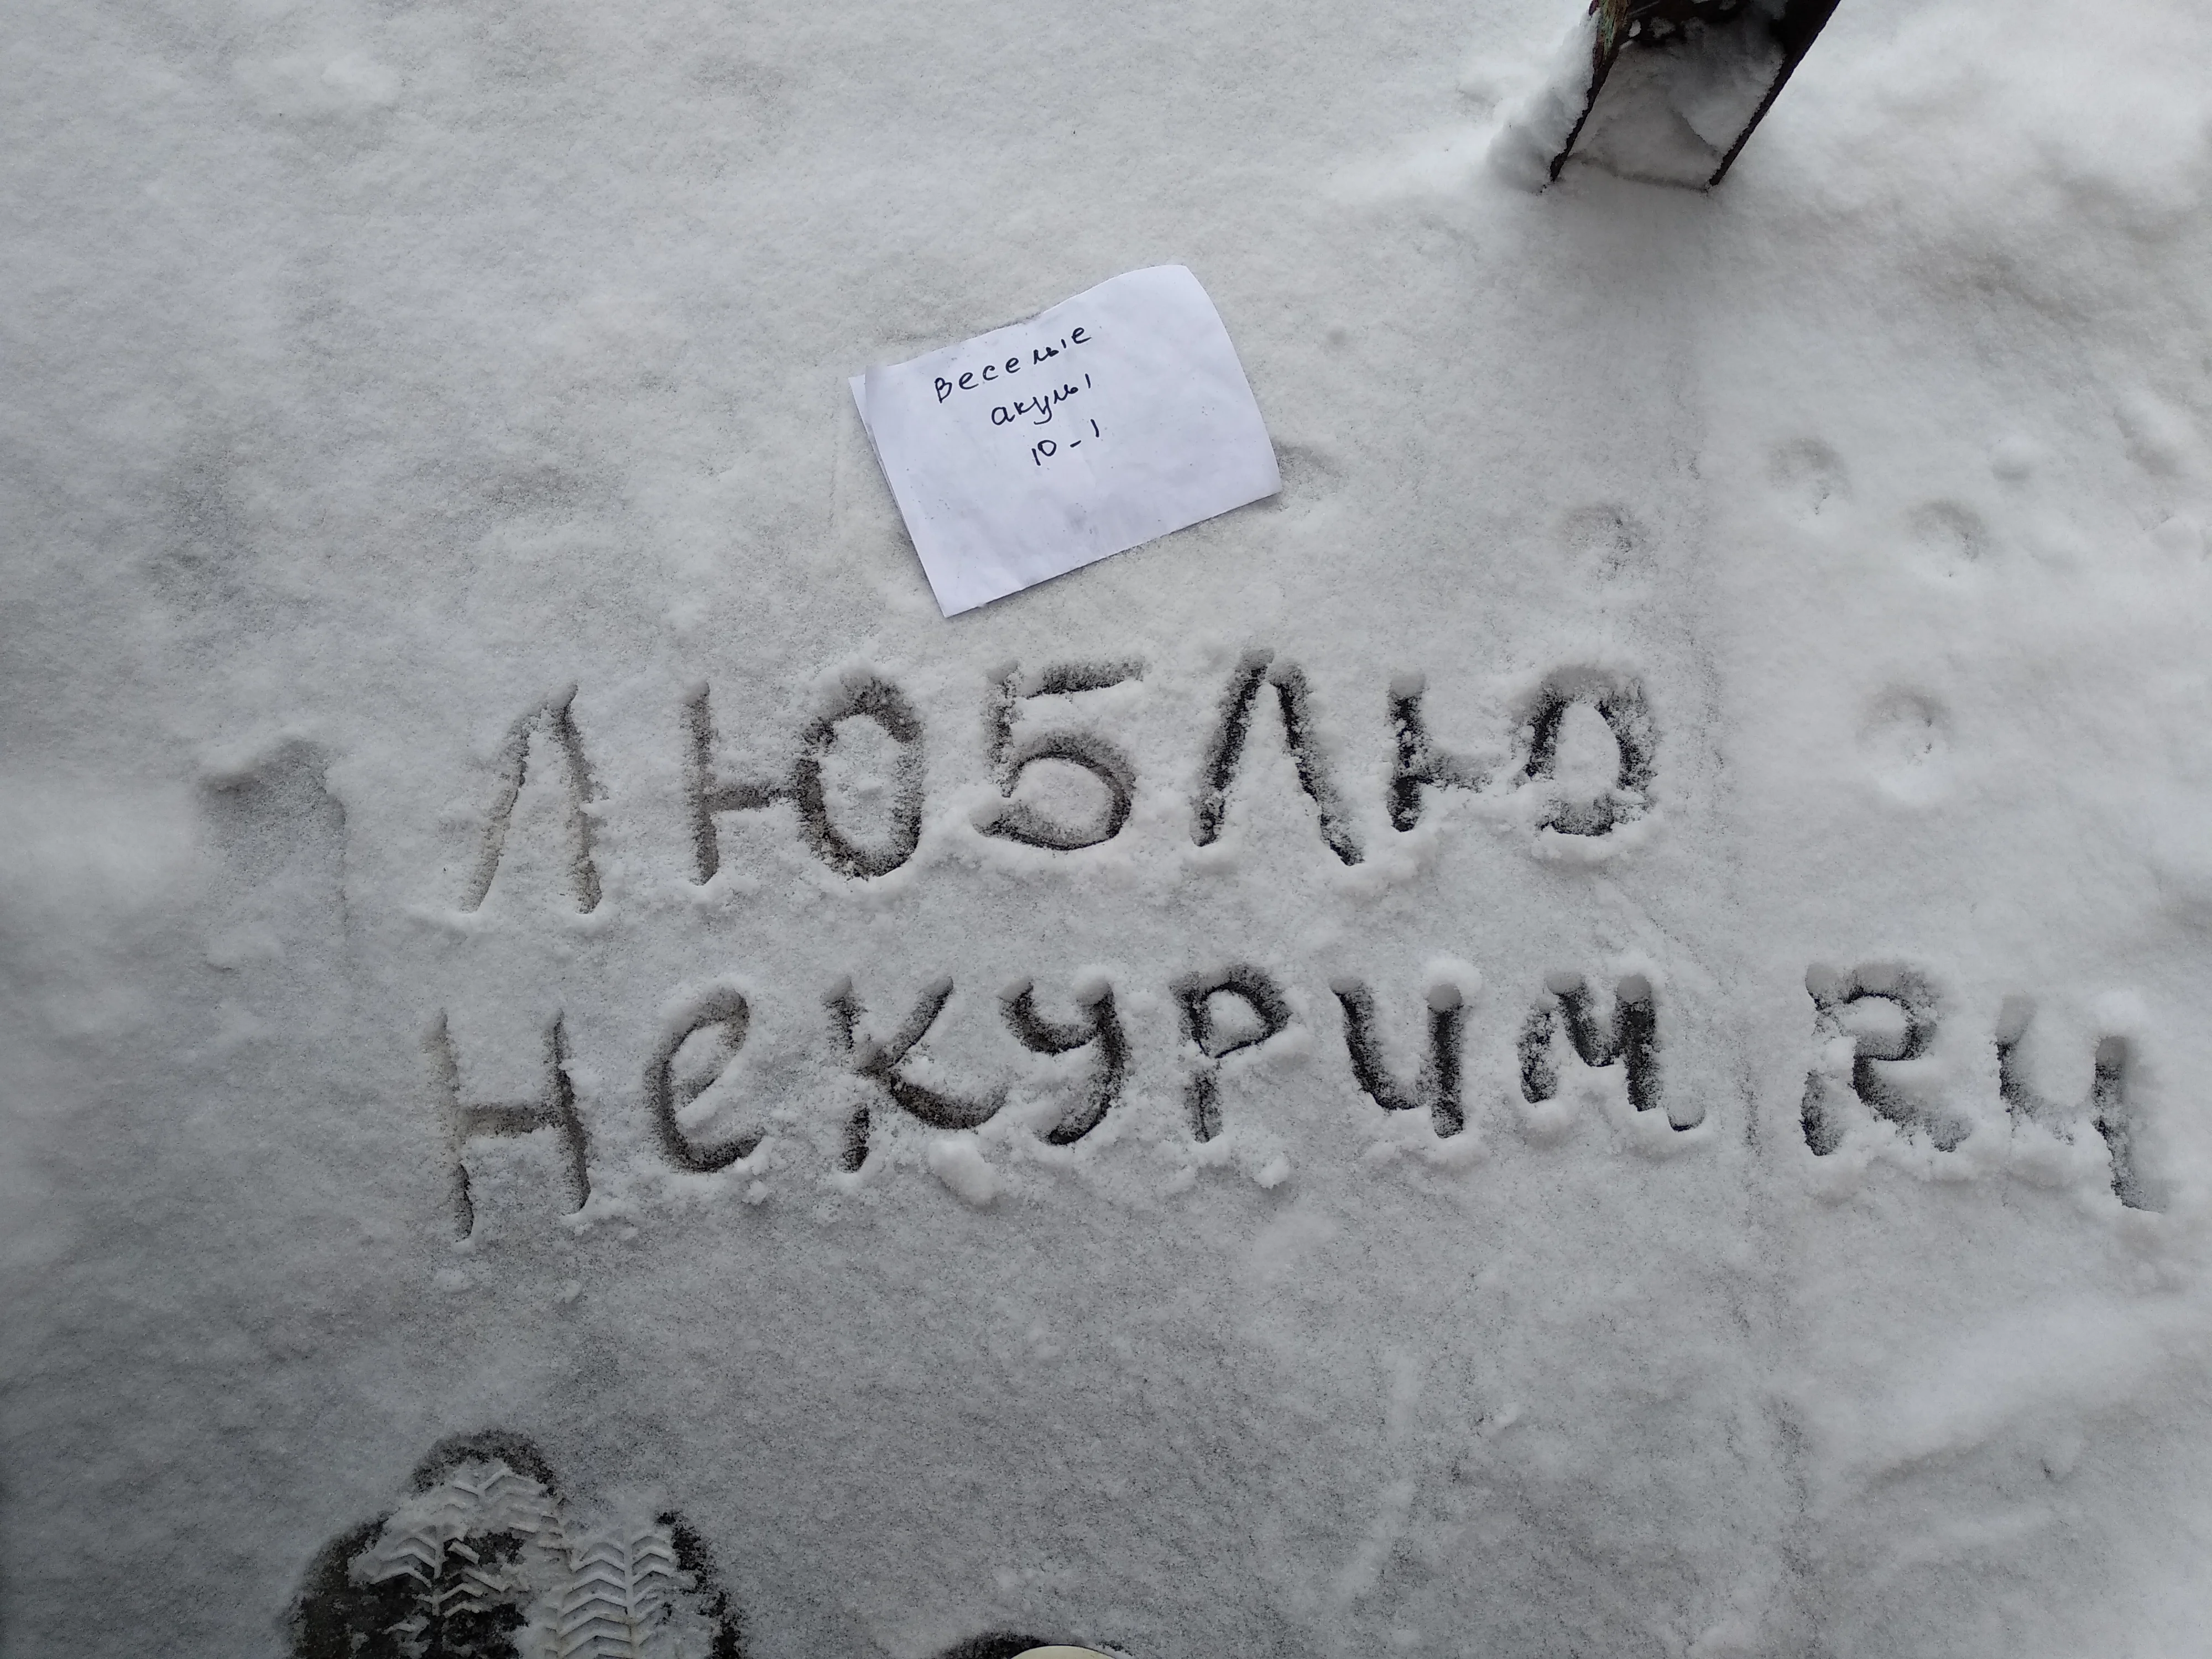 Веселые
акулы
10-1
ЛЮБЛЮ
НеКУРИМ.RU